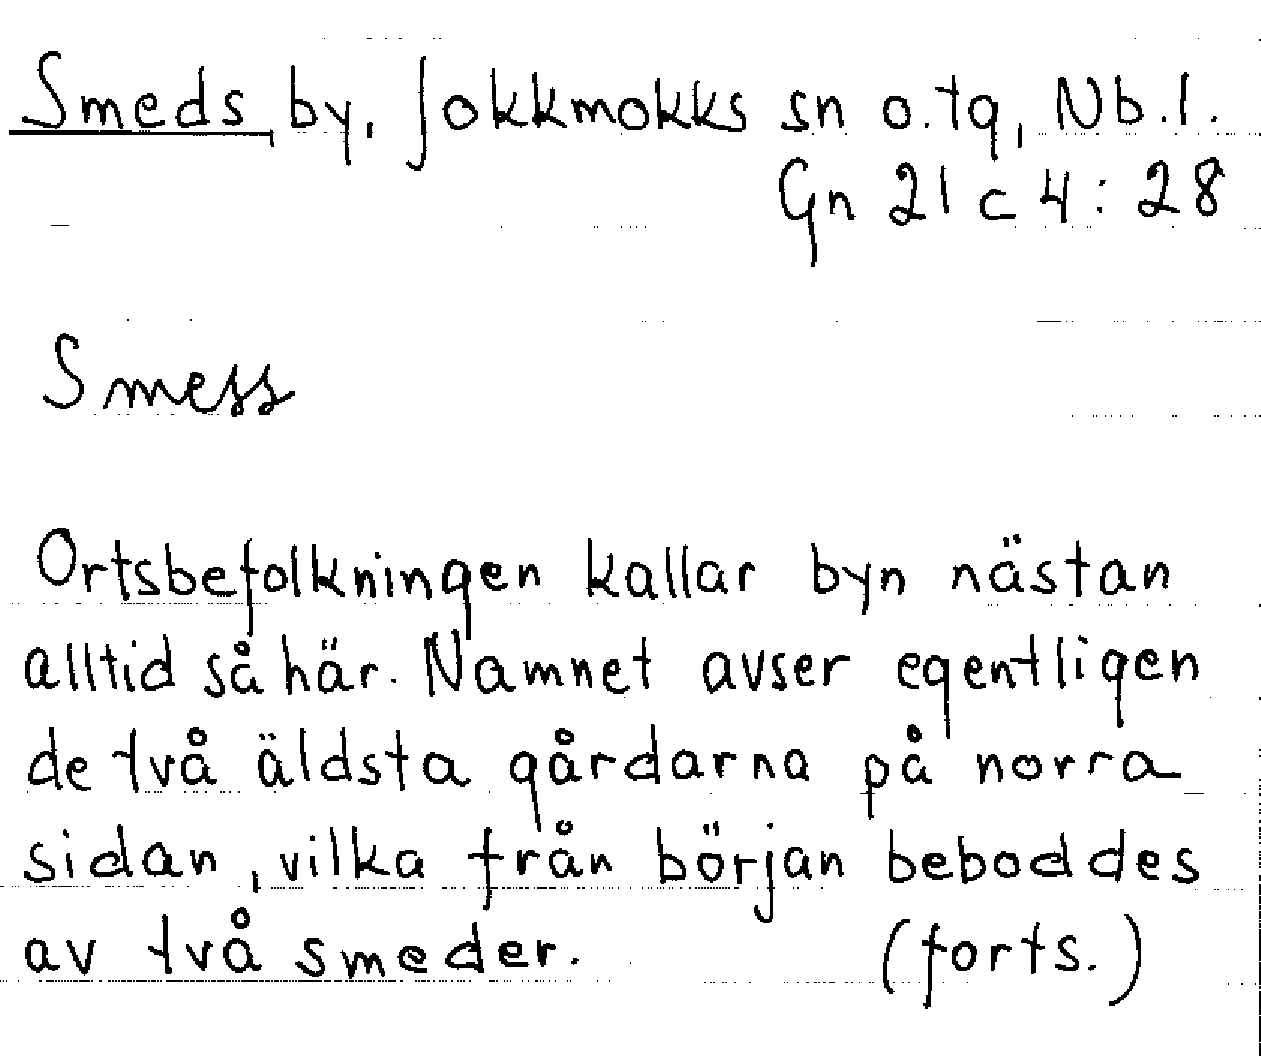 Smeds by, Jokkmokks sn o. tg, Nb. l.
Gn 21 c 4:28
Smess
Ortsbefolkningen kallar byn nästan
alltid så här. Namnet avser egentligen
de två äldsta gårdarna på norra
sidan, vilka från början beboddes
av två smeder. (forts.)